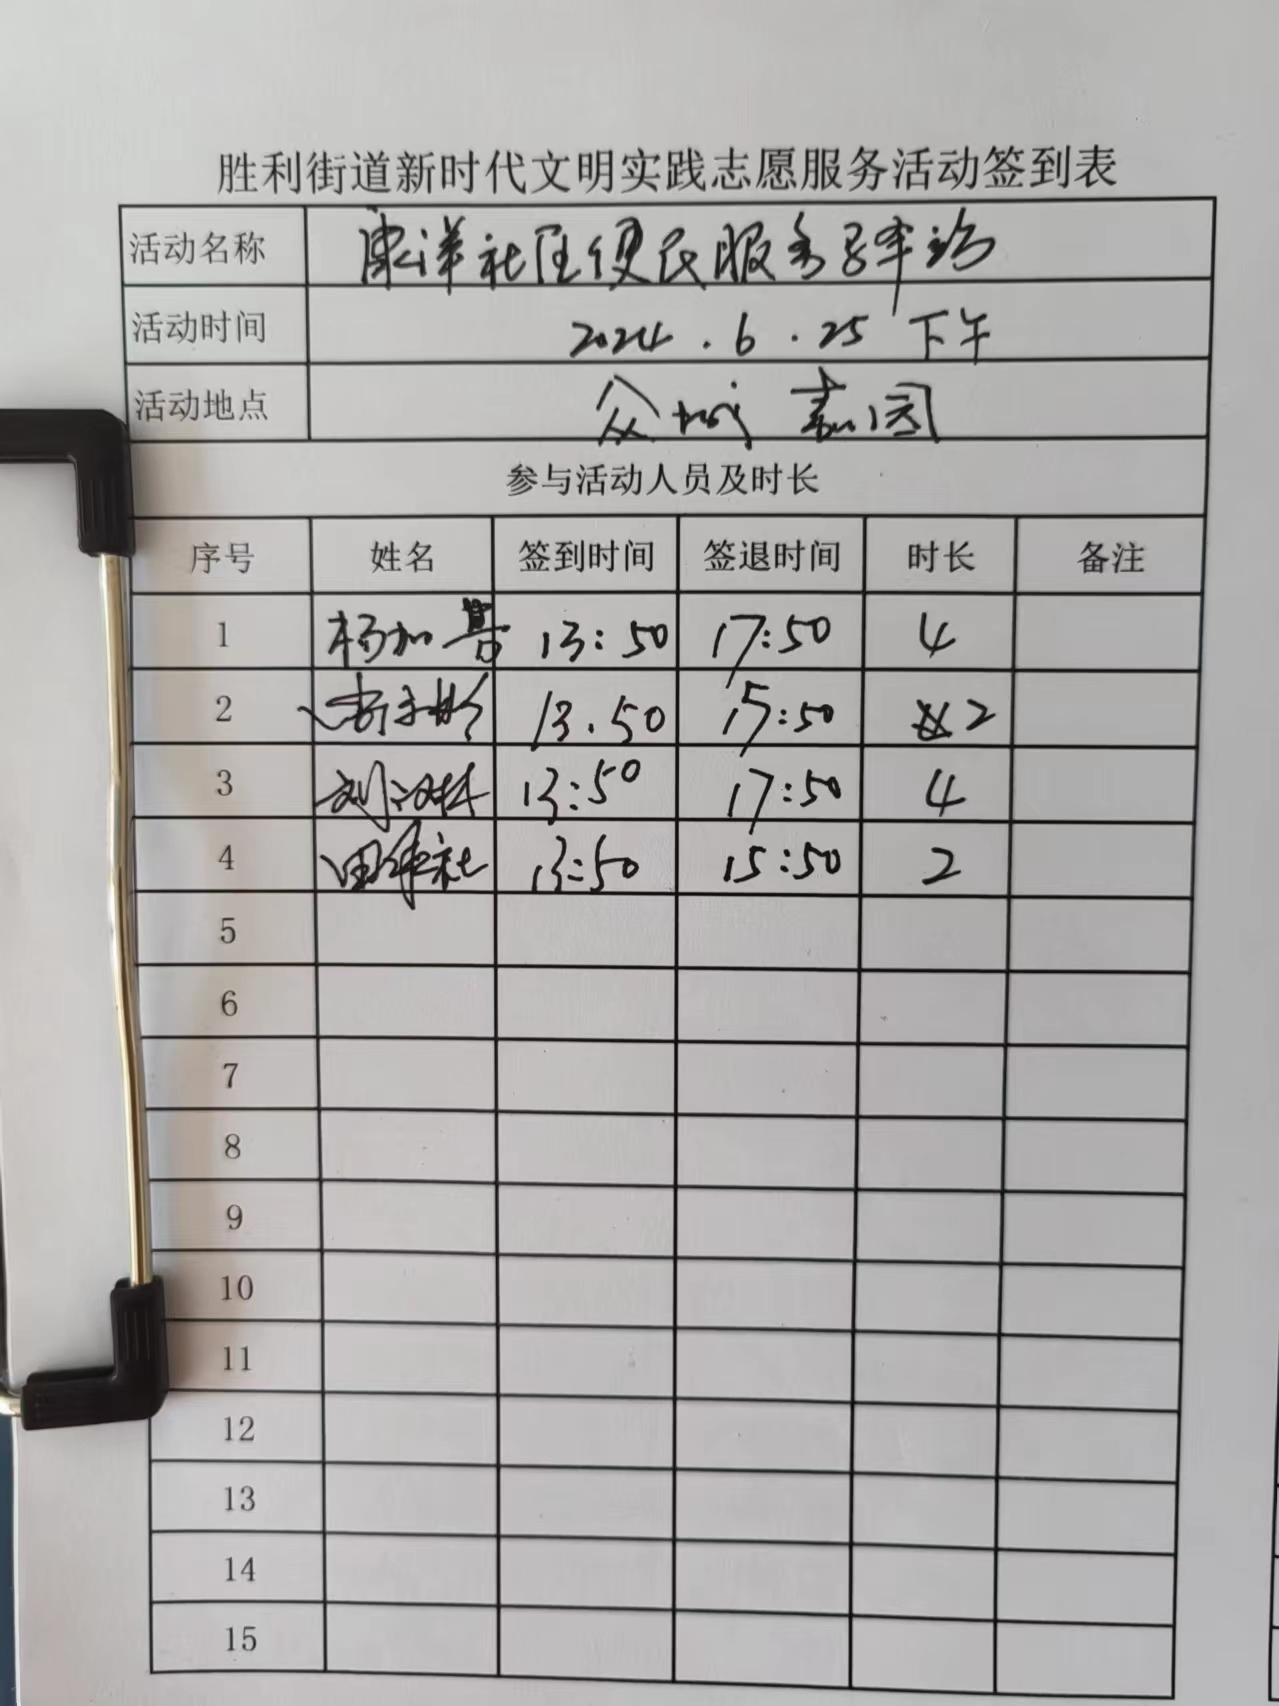 胜利街道新时代文明实践志愿服务活动签到表
活动名称 康洋社区便民服务嘉年华
活动时间 2024.6.25 下午
活动地点 众成嘉园
参与活动人员及时长
序号 姓名 签到时间 签退时间 时长 备注
1 杨加鲁 13:50 17:50 4
2 13.50 15:50 2
3 刘汉林 13:50 17:50 4
4 田 社 13:50 15:50 2
5
6
7
8
9
10
11
12
13
14
15